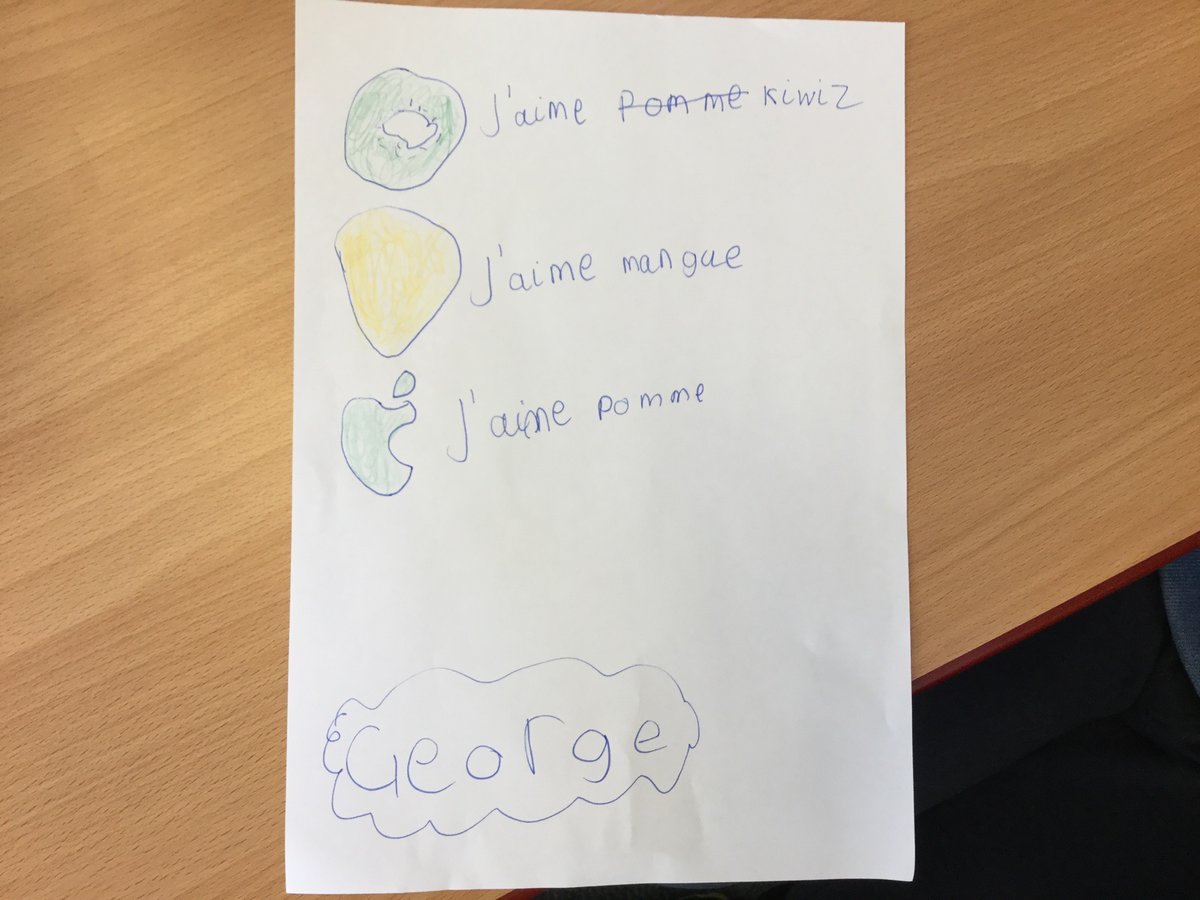 J'aime pomme kiwiz
J'aime mangue
J'aime pomme
George